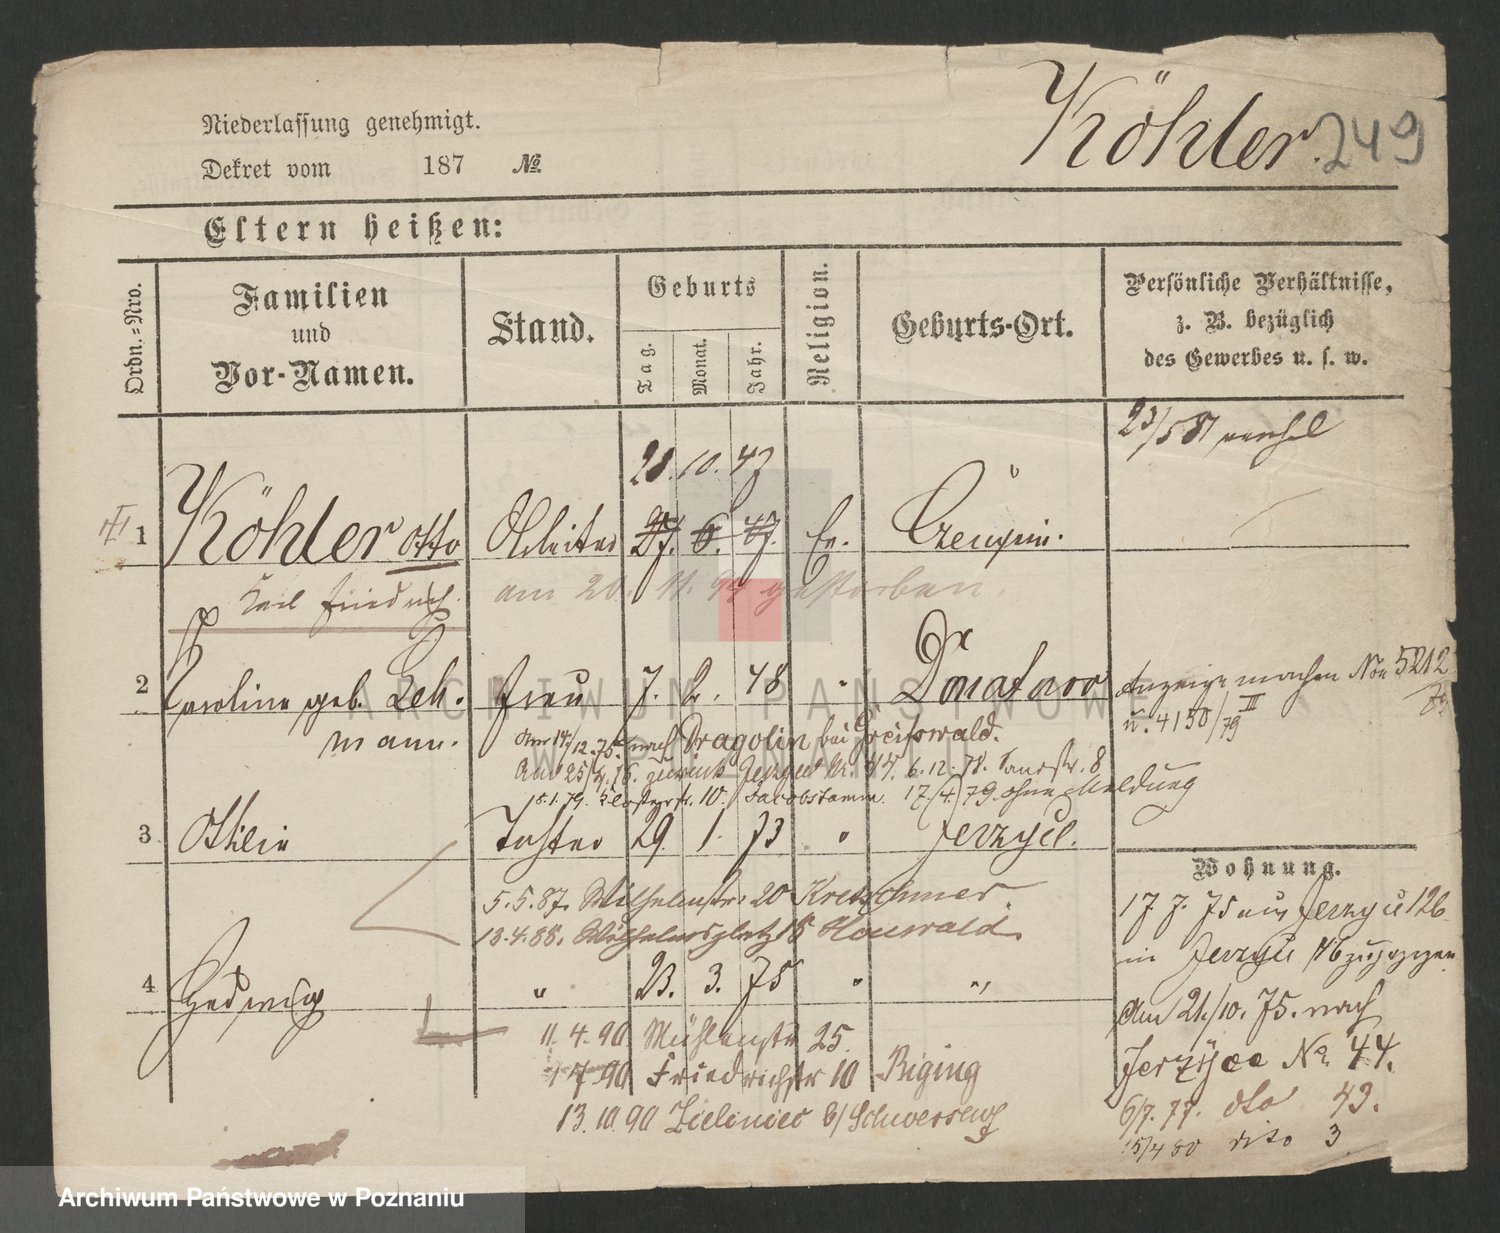 Niederlassung genehmigt.
Dekret vom 187 №
Köhler. 249
Eltern heißen:
Ordn.-Nro.
Familien und Vor-Namen.
Stand.
Geburts
Tag. Monat. Jahr.
Religion.
Geburts-Ort.
Persönliche Verhältnisse,
z. B. bezüglich
des Gewerbes u. s. w.
23/5 87
20. 10. 47
1 Köhler Otto Arbeiter 27. 6. 47. Ev.
Carl Friedrich am 20. 11. gestorben.
2 Caroline geb. Leh- Frau 7. 2. 48 "
mann.
Anzeige machen No 5212
u. 4150/79 III
Am 14/12.75. nach Dragolin bei Greifswald.
Am 25/4.76. zurück Jerzyce Nr. 44. 6.12.78. 8
18.1.79. 10. 17./4./79. ohne Meldung
3 Ottilie Tochter 29. 1. 73 " Jerzyce.
Wohnung.
5.5.87. Wilhelmstr. 20 Kretschmer.
13.4.88. Wilhelmsplatz 18
17. 7. 75 aus Jerzyce 126
in Jerzyce 46 zugezogen
4 Hedwig " 23. 3. 75 " "
Am 21./10. 75. nach
Jerzyce No. 44.
11. 4. 90 Mühlenstr 25.
7 90 Friedrichstr 10 Biging
6/7. 77. dto 43.
13. 10. 90 Zieliniec b/ Schwersenz
15/4 80 dito 3
ARCHIWUM PAŃSTWOWE
W POZNANIU
Archiwum Państwowe w Poznaniu